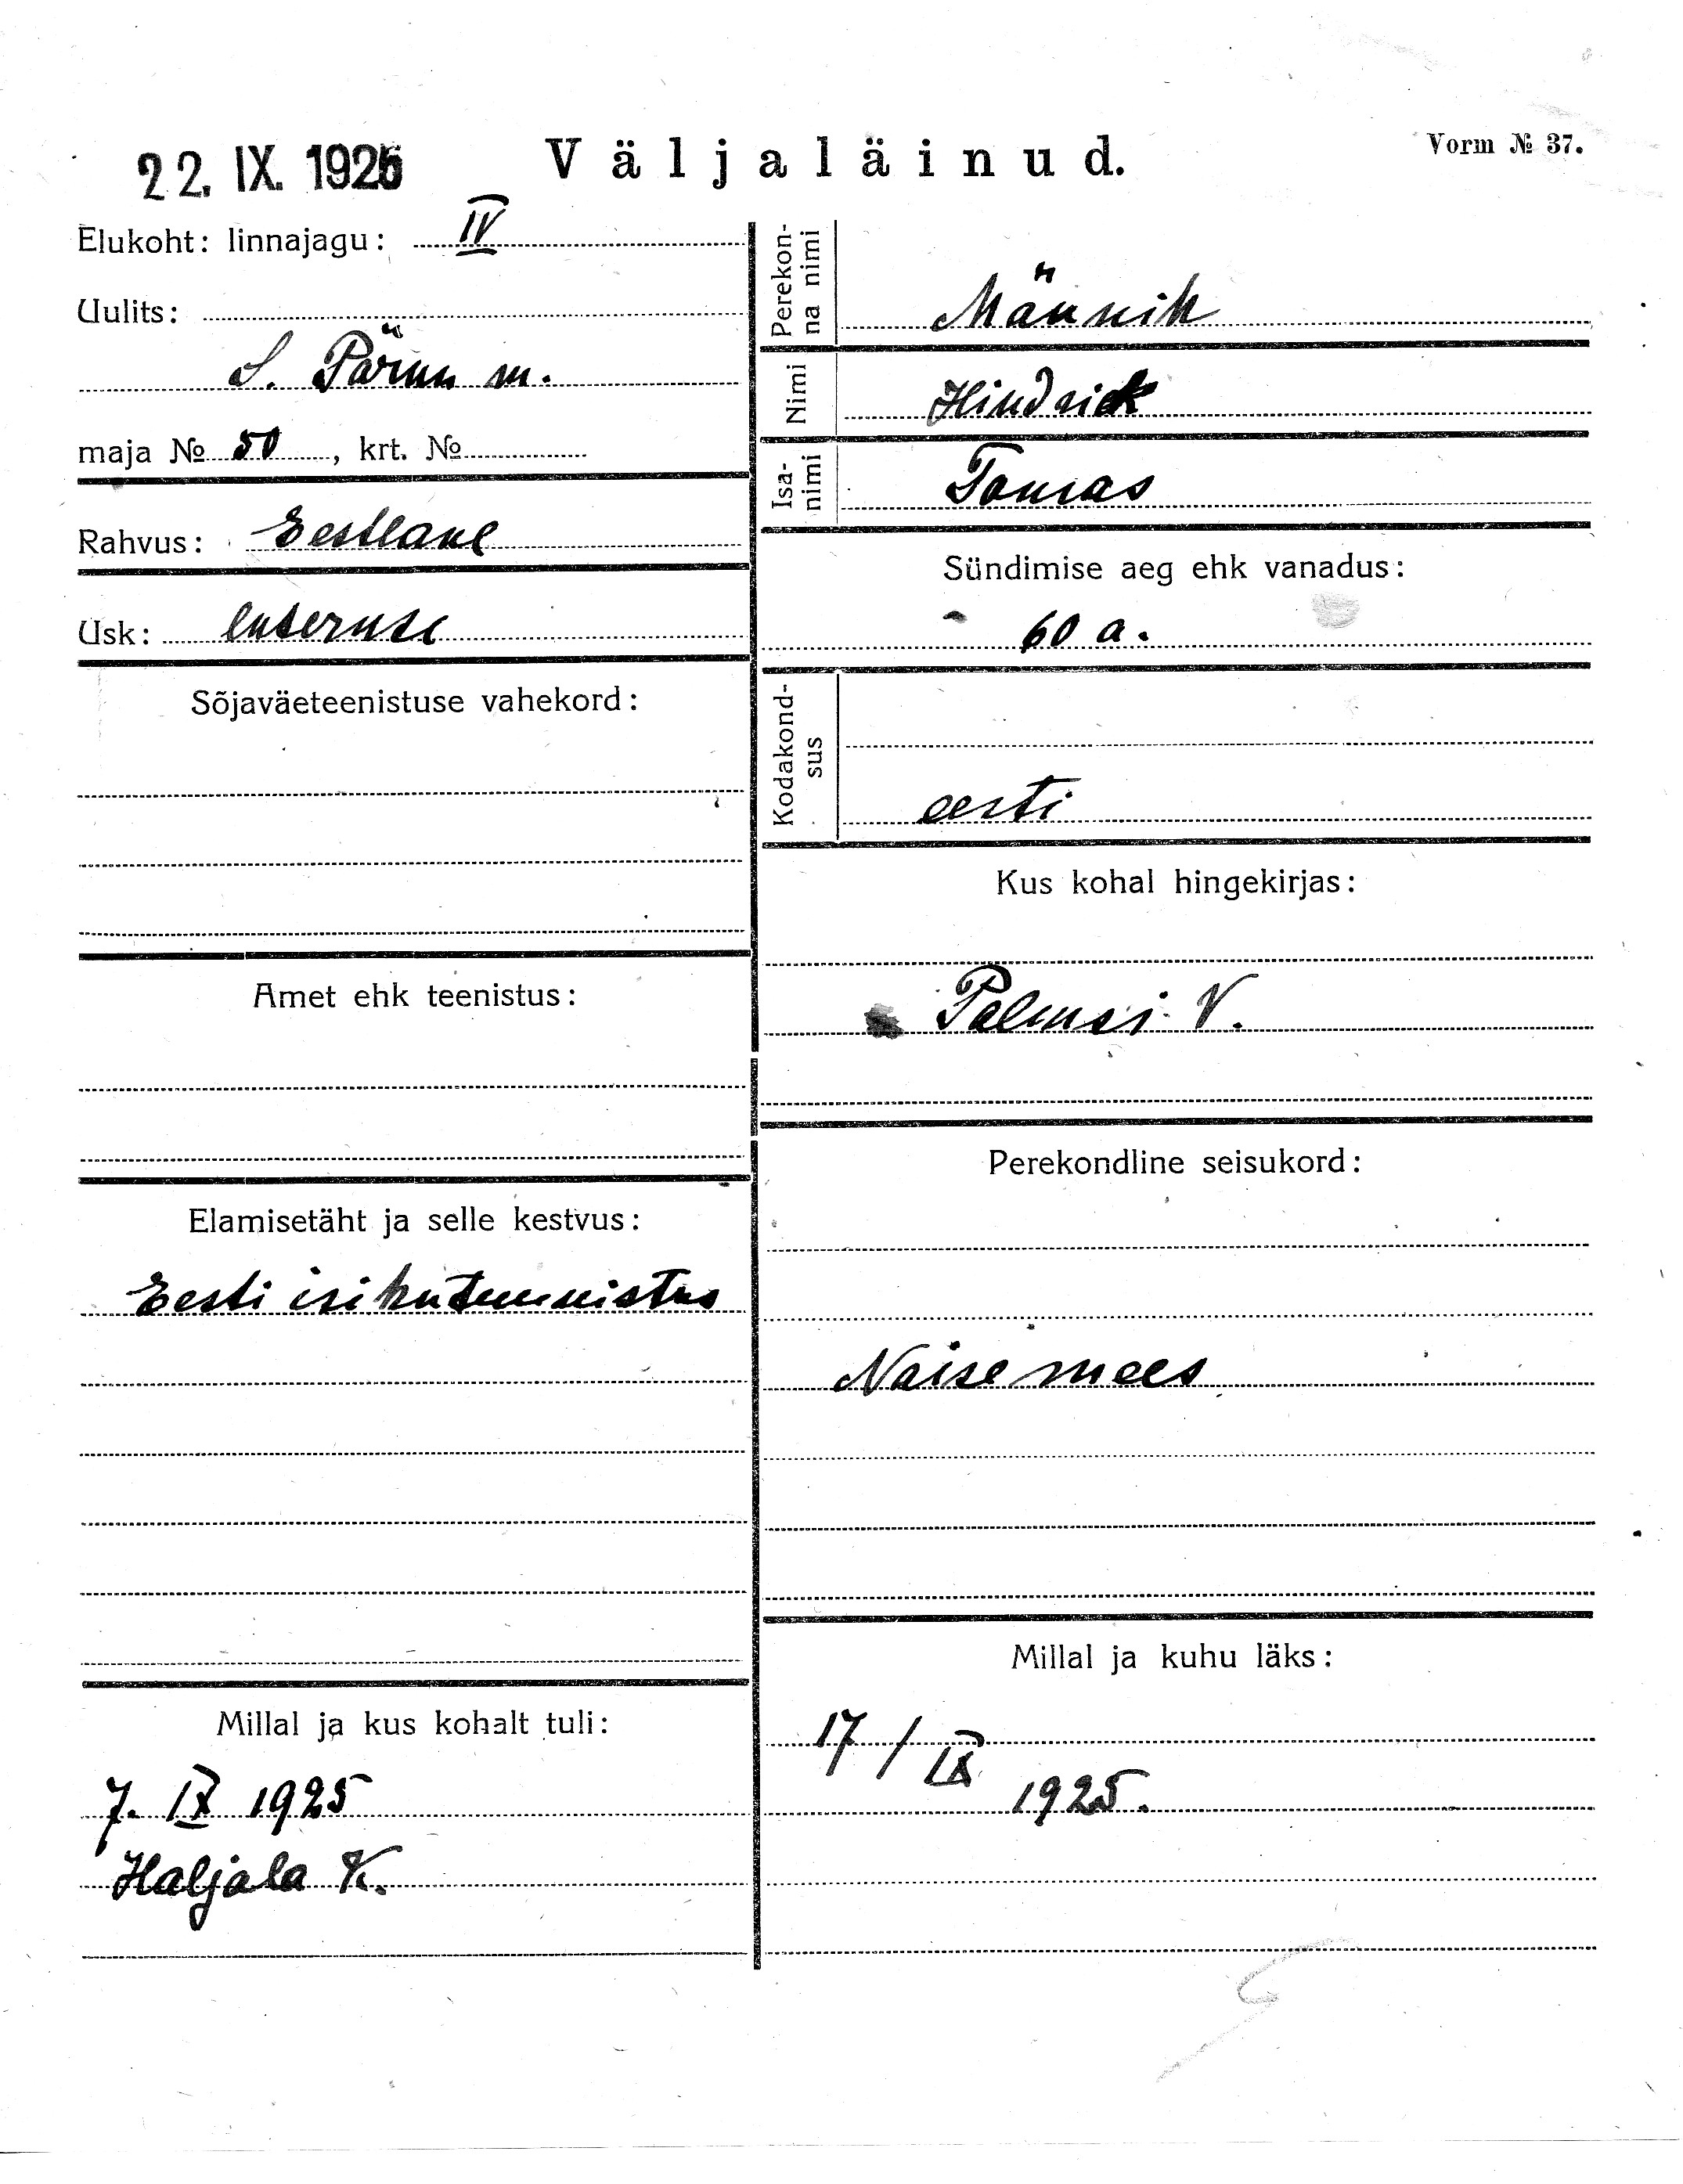 22. IX. 1925
Väljaläinud.
Vorm № 37.
Elukoht: linnajagu: IV
Uulits:
S. Pärnu m.
maja № 50, krt. №
Rahvus: Eestlane
Usk: luteruse
Sõjaväeteenistuse vahekord:
Amet ehk teenistus:
Elamisetäht ja selle kestvus:
Eesti isikutunnistus
Millal ja kus kohalt tuli:
7. IX 1925
Haljala K.
Perekon-
na nimi
Männik
Nimi
Hindrik
Isa-
nimi
Tomas
Sündimise aeg ehk vanadus:
60 a.
Kodakond-
sus
eesti
Kus kohal hingekirjas:
Palmsi V.
Perekondline seisukord:
Naisemees
Millal ja kuhu läks:
17/IX
1925.